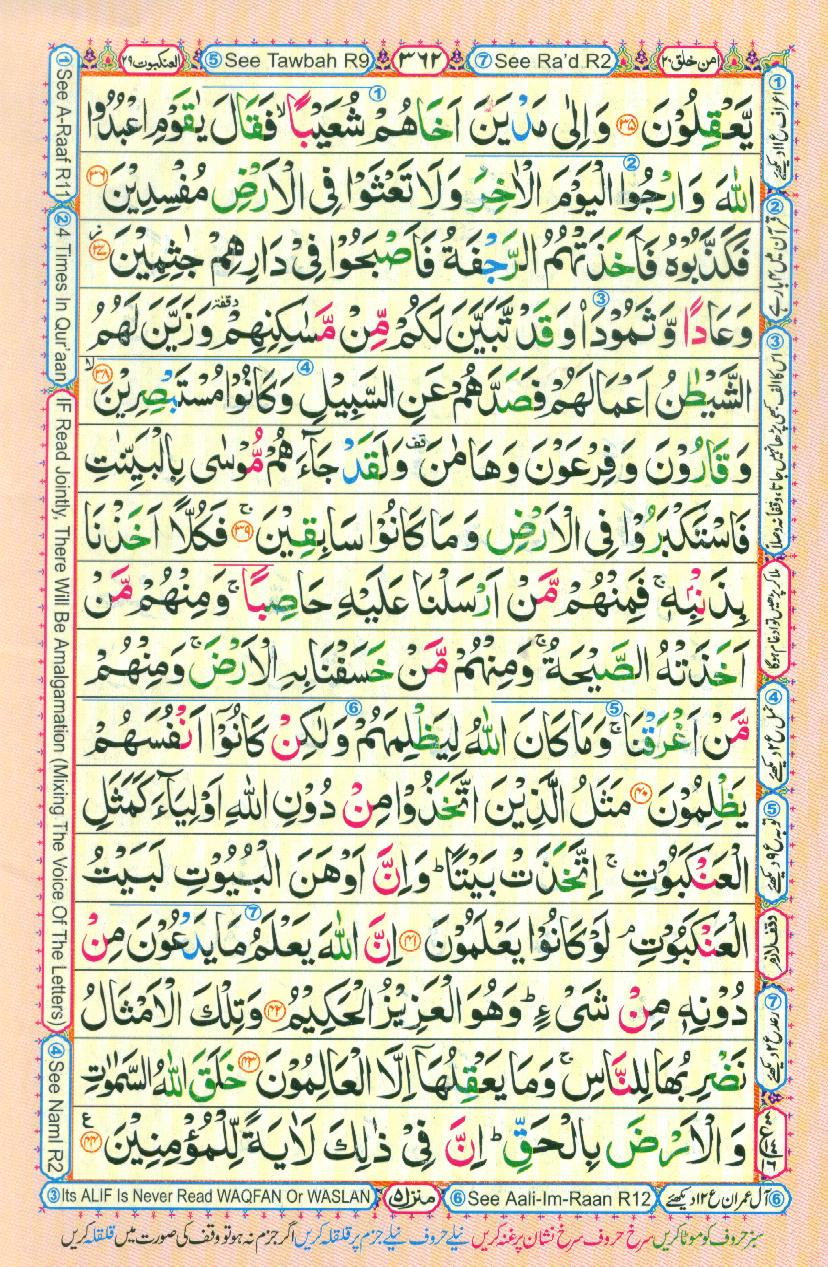 العنكبوت ٢٩
⑤ See Tawbah R9
٣٦٢
⑦ See Ra'd R2
امن خلق ٢٠
يَّعْقِلُوْنَ ۝٣٥ وَاِلٰى مَدْيَنَ اَخَاهُمْ شُعَيْبًا ۙ فَقَالَ يٰقَوْمِ اعْبُدُوا
اللّٰهَ وَارْجُوا الْيَوْمَ الْاٰخِرَ وَلَا تَعْثَوْا فِى الْاَرْضِ مُفْسِدِيْنَ ۝٣٦
فَكَذَّبُوْهُ فَاَخَذَتْهُمُ الرَّجْفَةُ فَاَصْبَحُوْا فِىْ دَارِهِمْ جٰثِمِيْنَ ۝٣٧
وَعَادًا وَّثَمُوْدَا۟ وَقَدْ تَّبَيَّنَ لَكُمْ مِّنْ مَّسٰكِنِهِمْ وقفة وَزَيَّنَ لَهُمُ
الشَّيْطٰنُ اَعْمَالَهُمْ فَصَدَّهُمْ عَنِ السَّبِيْلِ وَكَانُوْا مُسْتَبْصِرِيْنَ ۝٣٨ ۙ
وَقَارُوْنَ وَفِرْعَوْنَ وَهَامٰنَ قف وَلَقَدْ جَآءَهُمْ مُّوْسٰى بِالْبَيِّنٰتِ
فَاسْتَكْبَرُوْا فِى الْاَرْضِ وَمَا كَانُوْا سَابِقِيْنَ ۝٣٩ ۚ فَكُلًّا اَخَذْنَا
بِذَنْۢبِهٖ ۚ فَمِنْهُمْ مَّنْ اَرْسَلْنَا عَلَيْهِ حَاصِبًا ۚ وَمِنْهُمْ مَّنْ
اَخَذَتْهُ الصَّيْحَةُ ۚ وَمِنْهُمْ مَّنْ خَسَفْنَا بِهِ الْاَرْضَ ۚ وَمِنْهُمْ
مَّنْ اَغْرَقْنَا ۚ وَمَا كَانَ اللّٰهُ لِيَظْلِمَهُمْ وَلٰكِنْ كَانُوْۤا اَنْفُسَهُمْ
يَظْلِمُوْنَ ۝٤٠ مَثَلُ الَّذِيْنَ اتَّخَذُوْا مِنْ دُوْنِ اللّٰهِ اَوْلِيَآءَ كَمَثَلِ
الْعَنْكَبُوْتِ ۚ اِتَّخَذَتْ بَيْتًا ؕ وَاِنَّ اَوْهَنَ الْبُيُوْتِ لَبَيْتُ
الْعَنْكَبُوْتِ ۘ لَوْ كَانُوْا يَعْلَمُوْنَ ۝٤١ اِنَّ اللّٰهَ يَعْلَمُ مَا يَدْعُوْنَ مِنْ
دُوْنِهٖ مِنْ شَىْءٍ ؕ وَهُوَ الْعَزِيْزُ الْحَكِيْمُ ۝٤٢ وَتِلْكَ الْاَمْثَالُ
نَضْرِبُهَا لِلنَّاسِ ۚ وَمَا يَعْقِلُهَاۤ اِلَّا الْعَالِمُوْنَ ۝٤٣ خَلَقَ اللّٰهُ السَّمٰوٰتِ
وَالْاَرْضَ بِالْحَقِّ ؕ اِنَّ فِىْ ذٰلِكَ لَاٰيَةً لِّلْمُؤْمِنِيْنَ ۝٤٤ ع
① See A-Raaf R11
② 4 Times In Qur'aan
IF Read Jointly, There Will Be Amalgamation (Mixing The Voice Of The Letters)
④ See Naml R2
① اعراف ع ۱۱ دیکھئے
② قرآن میں ۴ بار ہے
③ اس کا الف کبھی پڑھا نہیں جاتا، وقفا نہ وصلا
ملا کر پڑھیں تو ادغام ہوگا
④ نمل ع ۲ دیکھئے
⑤ توبہ ع ۹ دیکھئے
وقف لازم
⑦ رعد ع ۲ دیکھئے
③ Its ALIF Is Never Read WAQFAN Or WASLAN
منزل ۵
⑥ See Aali-Im-Raan R12
⑥ آل عمران ع ۱۲ دیکھئے
سبز حروف کو موٹا کریں سرخ حروف سرخ نشان پر غنہ کریں نیلے حروف نیلے جزم پر قلقلہ کریں اگر جزم نہ ہو تو وقف کی صورت میں قلقلہ کریں